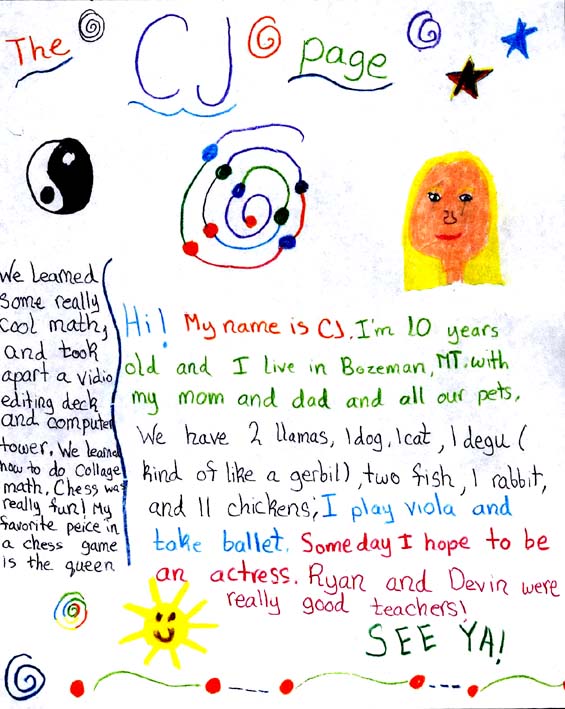 The CJ page
We learned
some really
cool math,
and took
apart a vidio
editing deck
and computer
tower. We learned
how to do Collage
math. Chess was
really fun! My
favorite peice in
a chess game
is the queen
Hi! My name is CJ. I'm 10 years
old and I live in Bozeman, MT. with
my mom and dad and all our pets.
We have 2 llamas, 1dog, 1cat, 1 degu (
kind of like a gerbil), two fish, 1 rabbit,
and 11 chickens; I play viola and
take ballet. Someday I hope to be
an actress. Ryan and Devin were
really good teachers!
SEE YA!